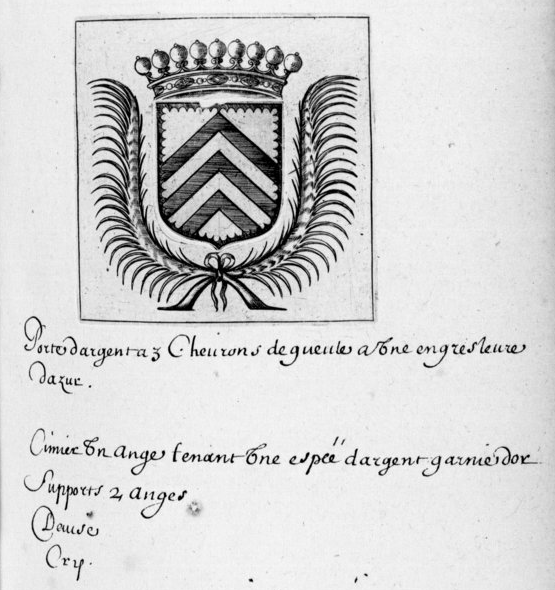 Porte dargent a 3 Cheurons de gueule a Vne engresleure
dazur.
Cimier Vn Ange tenant Vne espéé dargent garnie dor
Supports 2 Anges
Deuise
Cry.